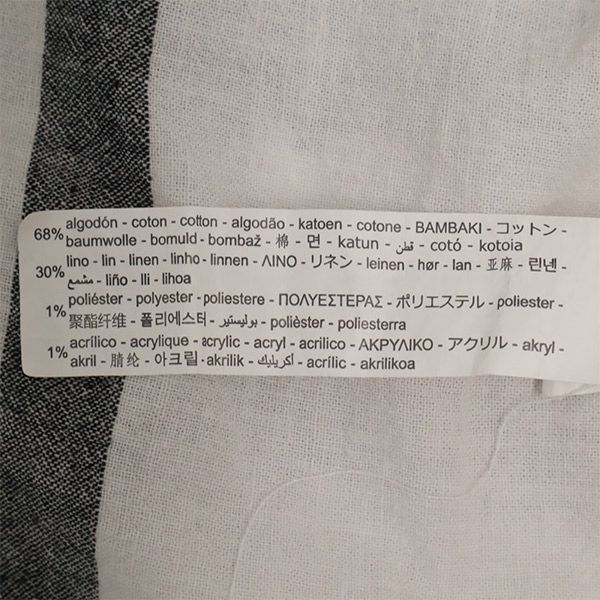 68% algodón - coton - cotton - algodão - katoen - cotone - ΒΑΜΒΑΚΙ - コットン -
baumwolle - bomuld - bombaž - 棉 - 면 - katun - قطن - cotó - kotoia
30% lino - lin - linen - linho - linnen - ΛΙΝΟ - リネン - leinen - hør - lan - 亚麻 - 린넨 -
مشمع - liño - lli - lihoa
1% poliéster - polyester - poliestere - ΠΟΛΥΕΣΤΕΡΑΣ - ポリエステル - poliester -
聚酯纤维 - 폴리에스터 - بوليستير - polièster - poliesterra
1% acrílico - acrylique - acrylic - acryl - acrilico - ΑΚΡΥΛΙΚΟ - アクリル - akryl -
akril - 腈纶 - 아크릴 · akrilik - اكريليك - acrílic - akrilikoa